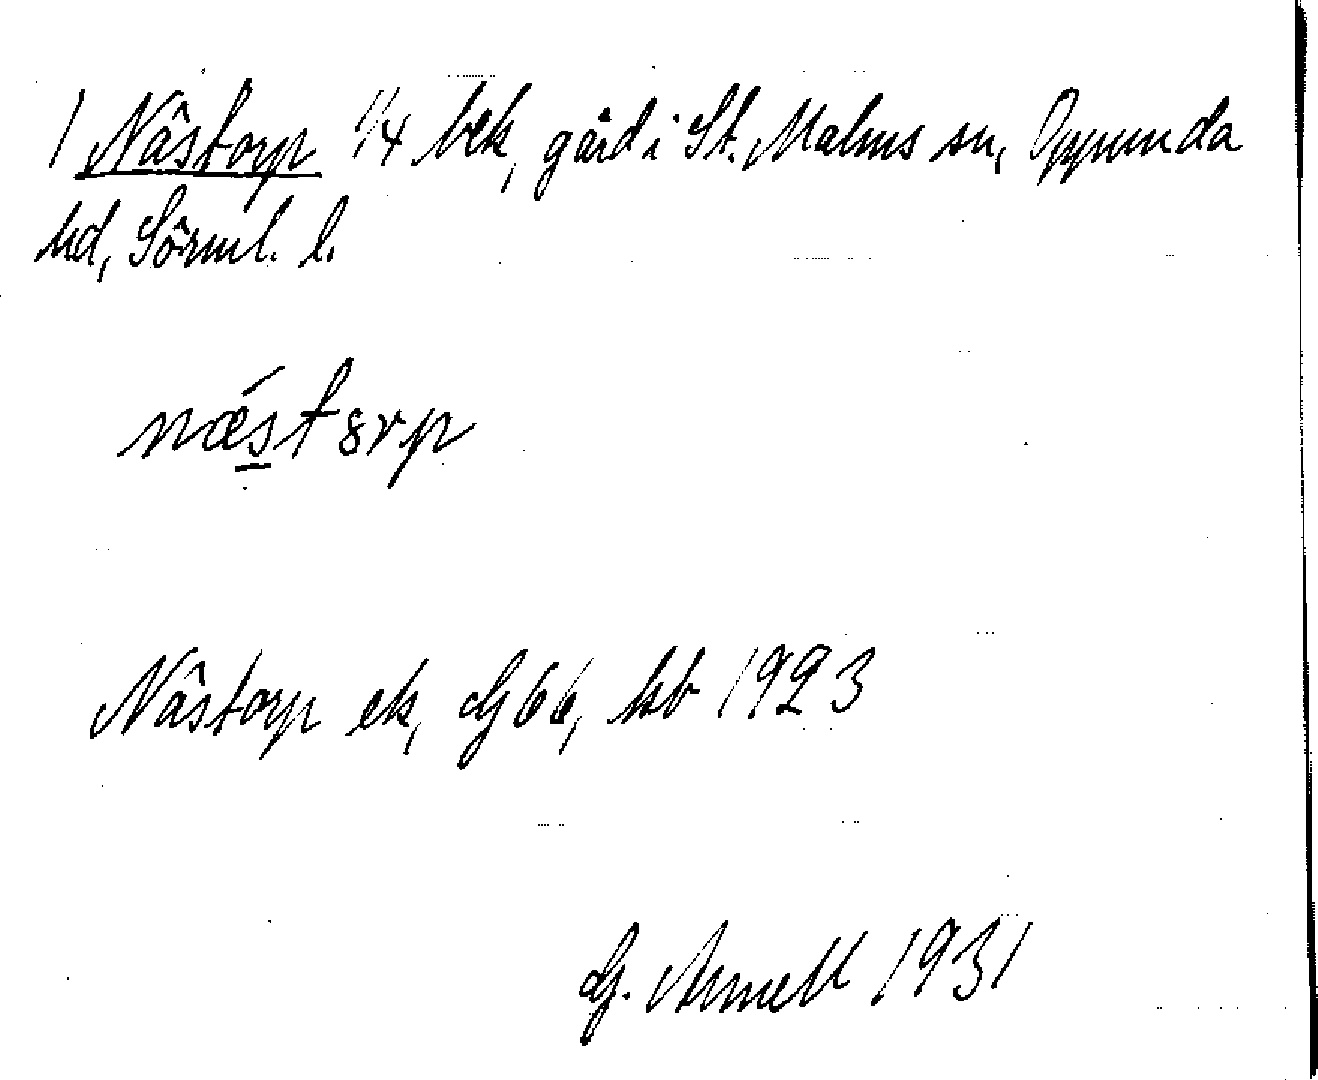 1 Nästorp 1/4 bek, gård i St. Malms sn, Oppunda
hd, Sörml. l.
næ´stɵrp
Nästorp ek, G66, kb 1923
G. Arnell 1931